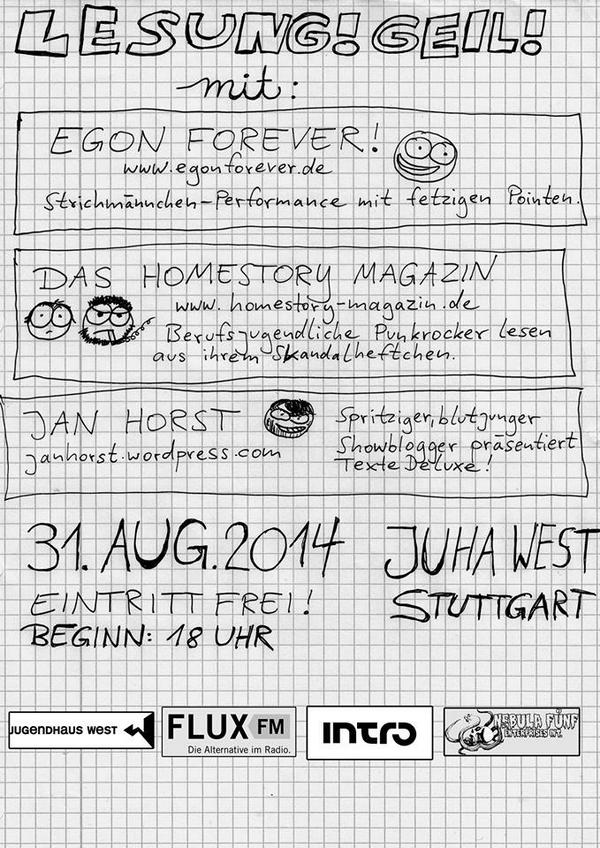 LESUNG! GEIL!
mit:
EGON FOREVER!
www.egonforever.de
Strichmännchen-Performance mit fetzigen Pointen.
DAS HOMESTORY MAGAZIN
www.homestory-magazin.de
Berufsjugendliche Punkrocker lesen
aus ihrem Skandalheftchen.
JAN HORST
janhorst.wordpress.com
Spritziger, blutjunger
Showblogger präsentiert
Texte Deluxe!
31. AUG. 2014
JUHA WEST
STUTTGART
EINTRITT FREI!
BEGINN: 18 UHR
JUGENDHAUS WEST
FLUX FM
Die Alternative im Radio.
INTRO
NEBULA FÜNF
ENTERPRISES INT.